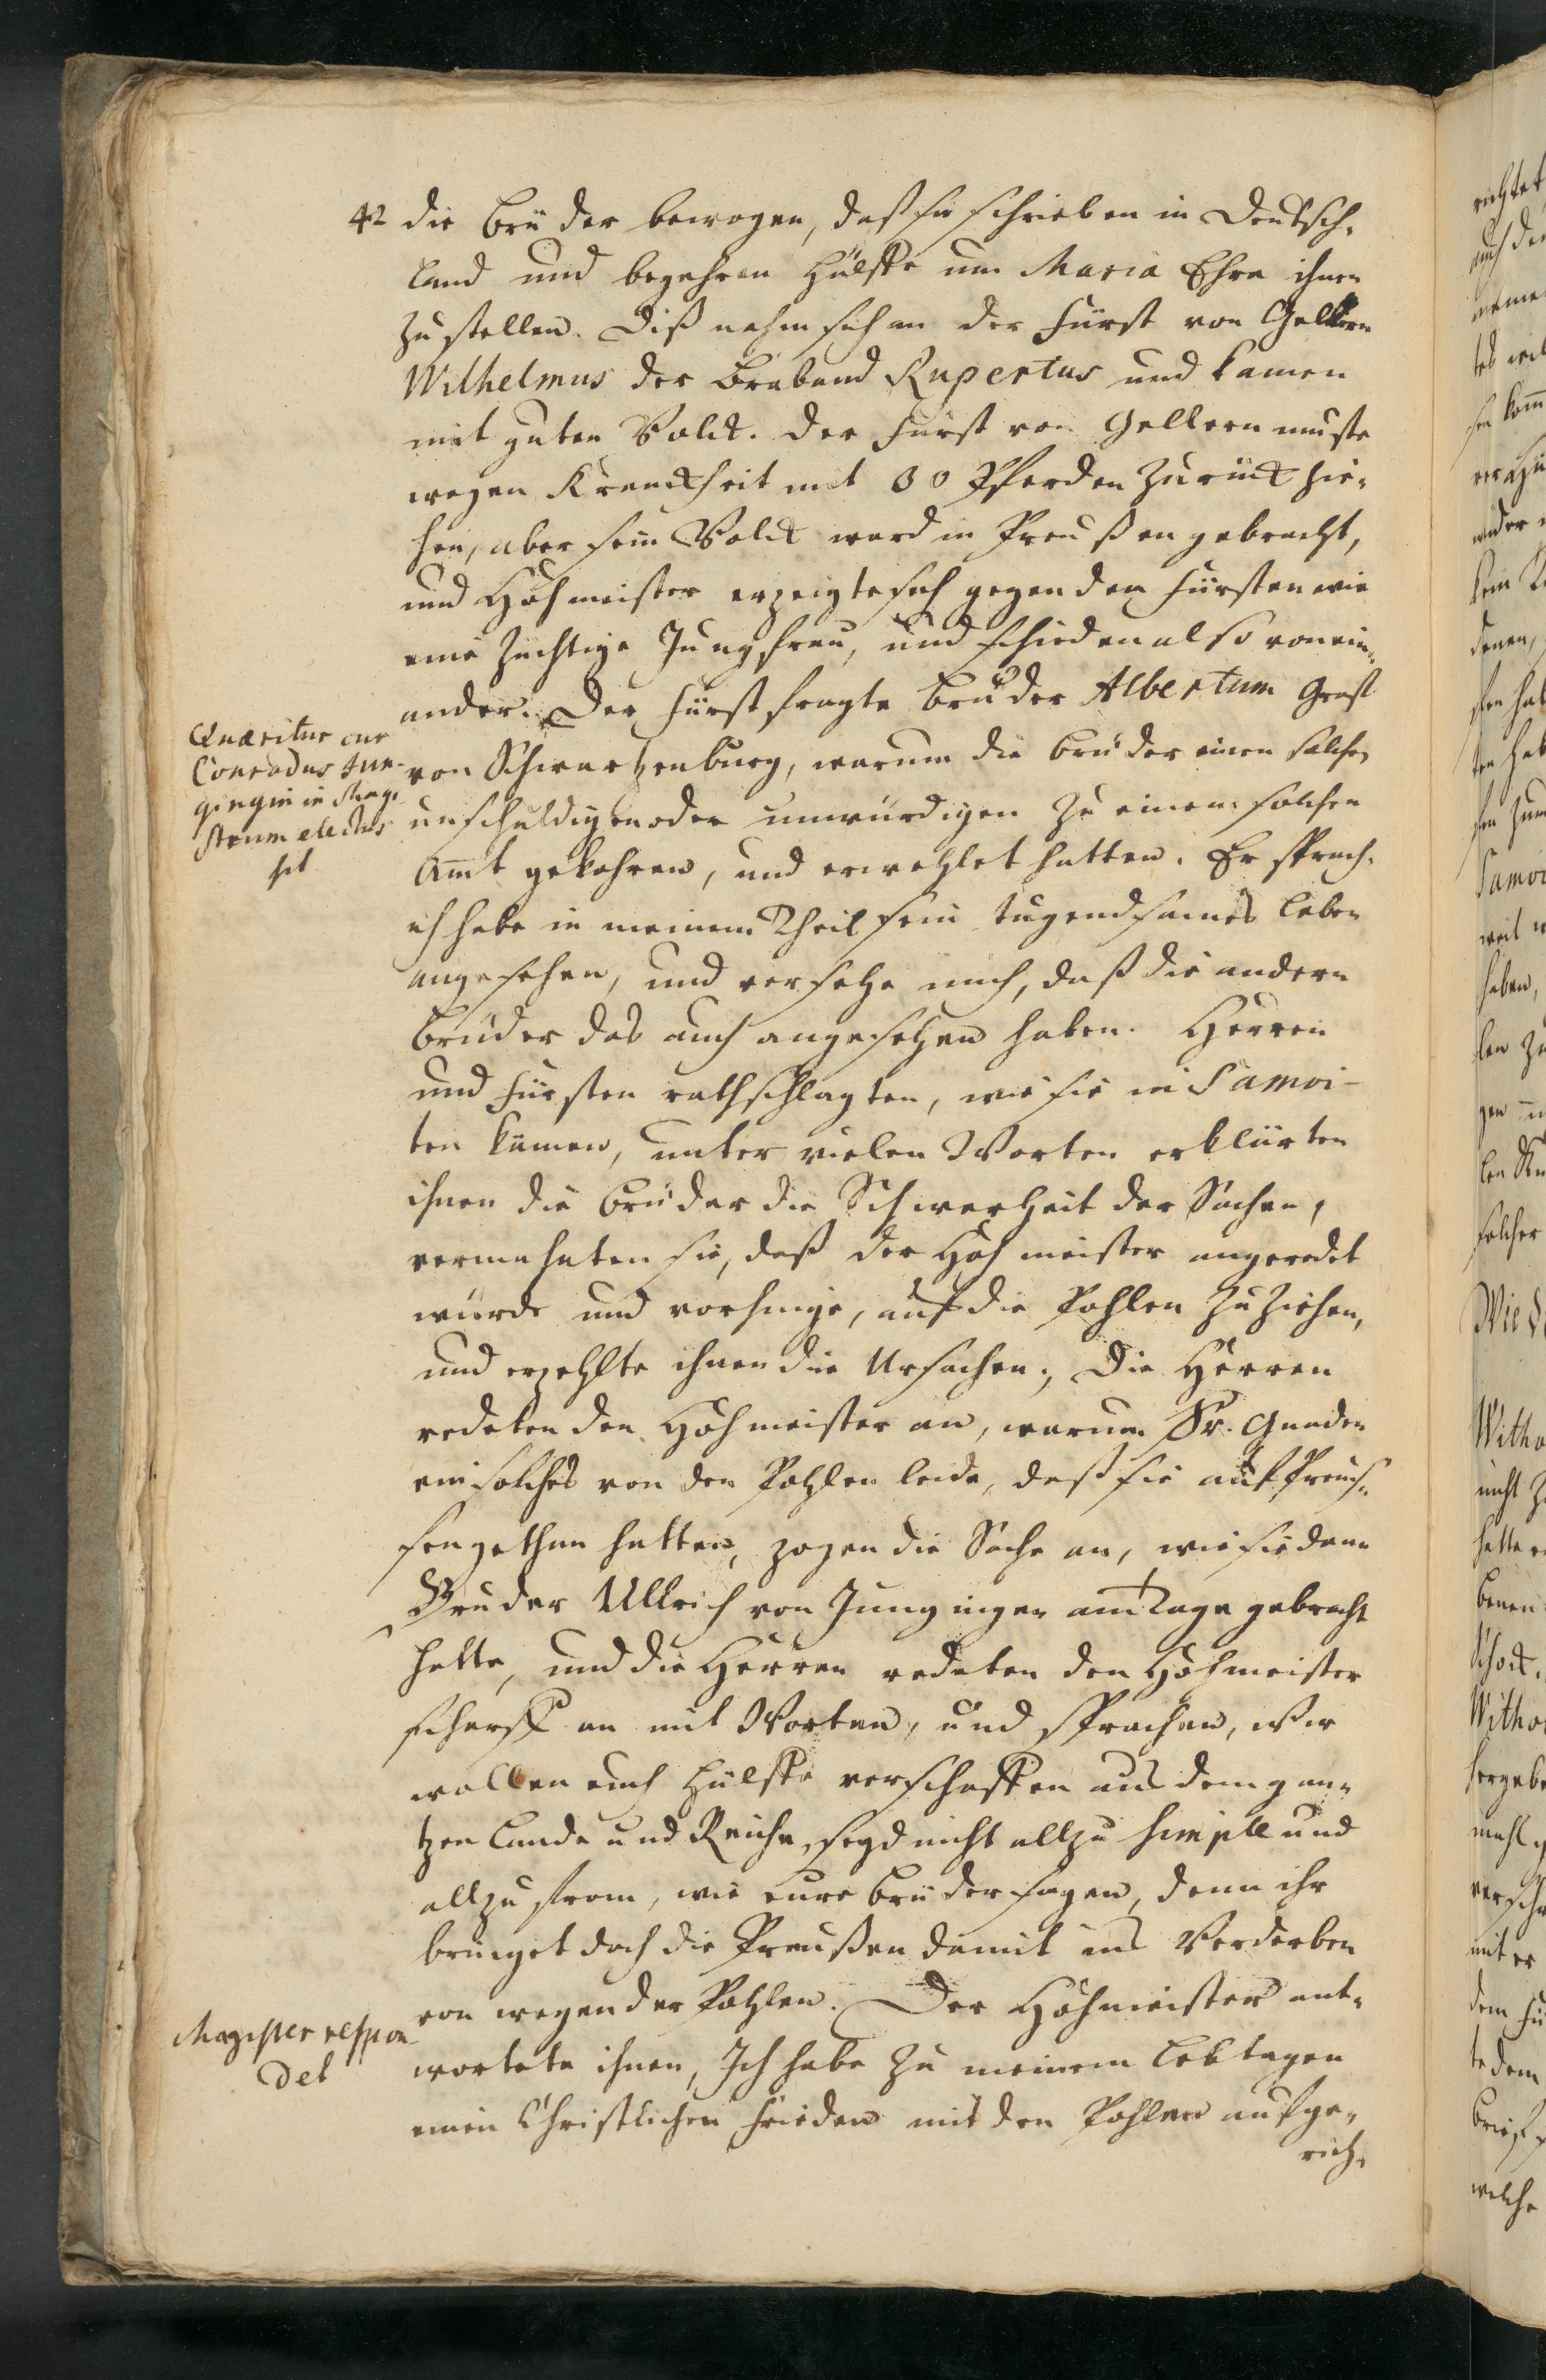 42 die Brüder bewogen, daß sie schrieben in Deutsch-
land und begehren Hülffe um Maria Ehre ihnen
zustellen. Diß nahm sich an der Fürst von Gellern
Wilhelmus der Braband Rupertus und kamen
mit guten Volck. der Fürst von Gellern muste
wegen Kranckheit mit 80 Pferden zurück zie-
hen, aber sein Volck ward in Preußen gebracht,
und Hohmeister erzeigte sich gegen dem Fürsten wie
eine züchtige Jungfrau, und schieden also vonein-
ander. Der Fürst fragte Bruder Albertum Graff
Quæritur cur
Conradus Jun-
gingin in Magi
strum electus
sit
von Schwartzenburg, warum die Brüder einen solchen
unschuldigen oder unwürdigen zu einem solchen
Amt gekohren, und erwehlet hatten. Er sprach:
ich habe in meinem Theil sein tugendsames Leben
angesehen, und versehe mich, daß die andern
Brüder das auch angesehen haben. Herren
und Fürsten rathschlagten, wie sie in Samoi-
ten kämen, unter vielen Worten erklärten
ihnen die Brüder die Schwerheit der Sachen,
vermahnten sie, daß der Hohmeister angeredet
würde und vorhinge, auf die Pohlen zu ziehen,
und erzehlte ihnen die Ursachen. Die Herren
redeten den Hohmeister an, warum Sr. Gnaden
ein solches von den Pohlen leide, daß sie auf Preus-
sen gethan hatten, zogen die Sache an, wie sie dann
Bruder Ullrich von Jungingen am Tage gebracht
hatte, und die Herren redeten den Hohmeister
scharff an mit Worten, und sprachen, wir
wollen euch Hülffe verschaffen aus dem gan-
tzen Lande und Reiche, seyd nicht allzu simpel und
allzu from, wie eure Brüder sagen, denn ihr
bringet doch die Preußen damit ins Verderben
von wegen der Pohlen. Der Hohmeister ant-
Magister respon-
det
wortete ihnen, Ich habe zu meinem Lebtagen
einen Christlichen Frieden mit den Pohlen aufge-
rich-